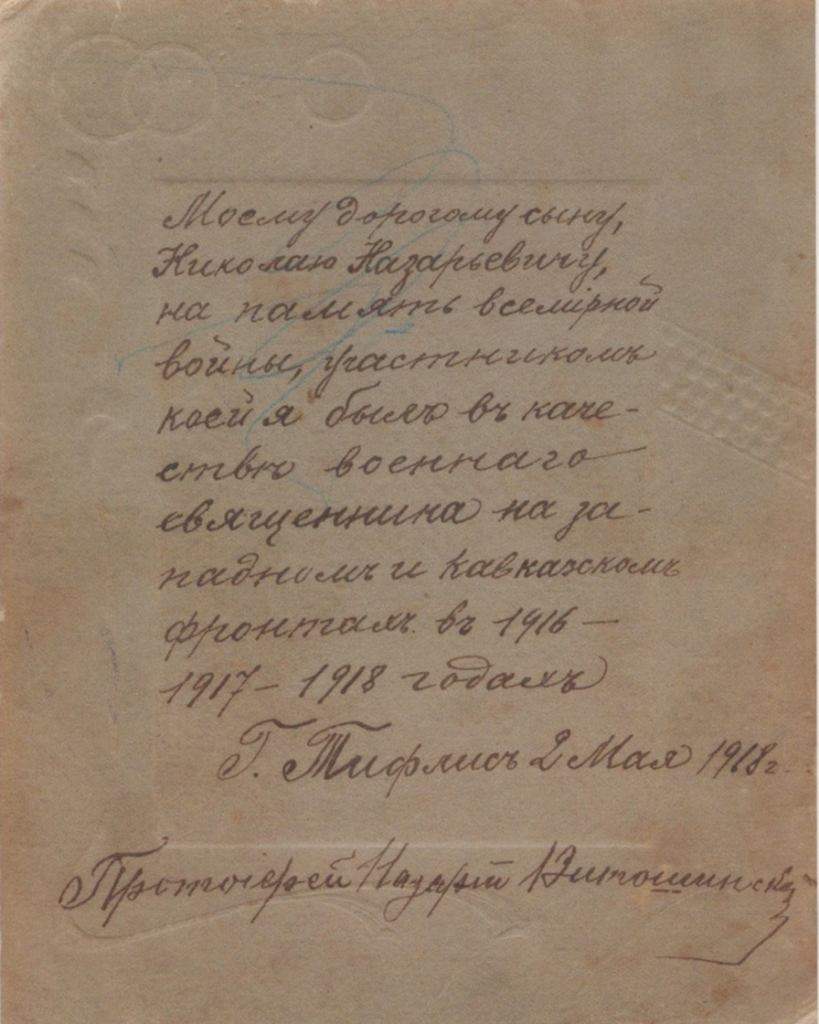 Моему дорогому сыну,
Николаю Назарьевичу,
на память всемірной
войны, участникомъ
коей я былъ въ каче-
ствѣ военнаго
священника на за-
падномъ и Кавказскомъ
фронтахъ въ 1916 —
1917 – 1918 годахъ
Г. Тифлисъ 2 Мая 1918 г.
Протоіерей Назарій Витошинскій